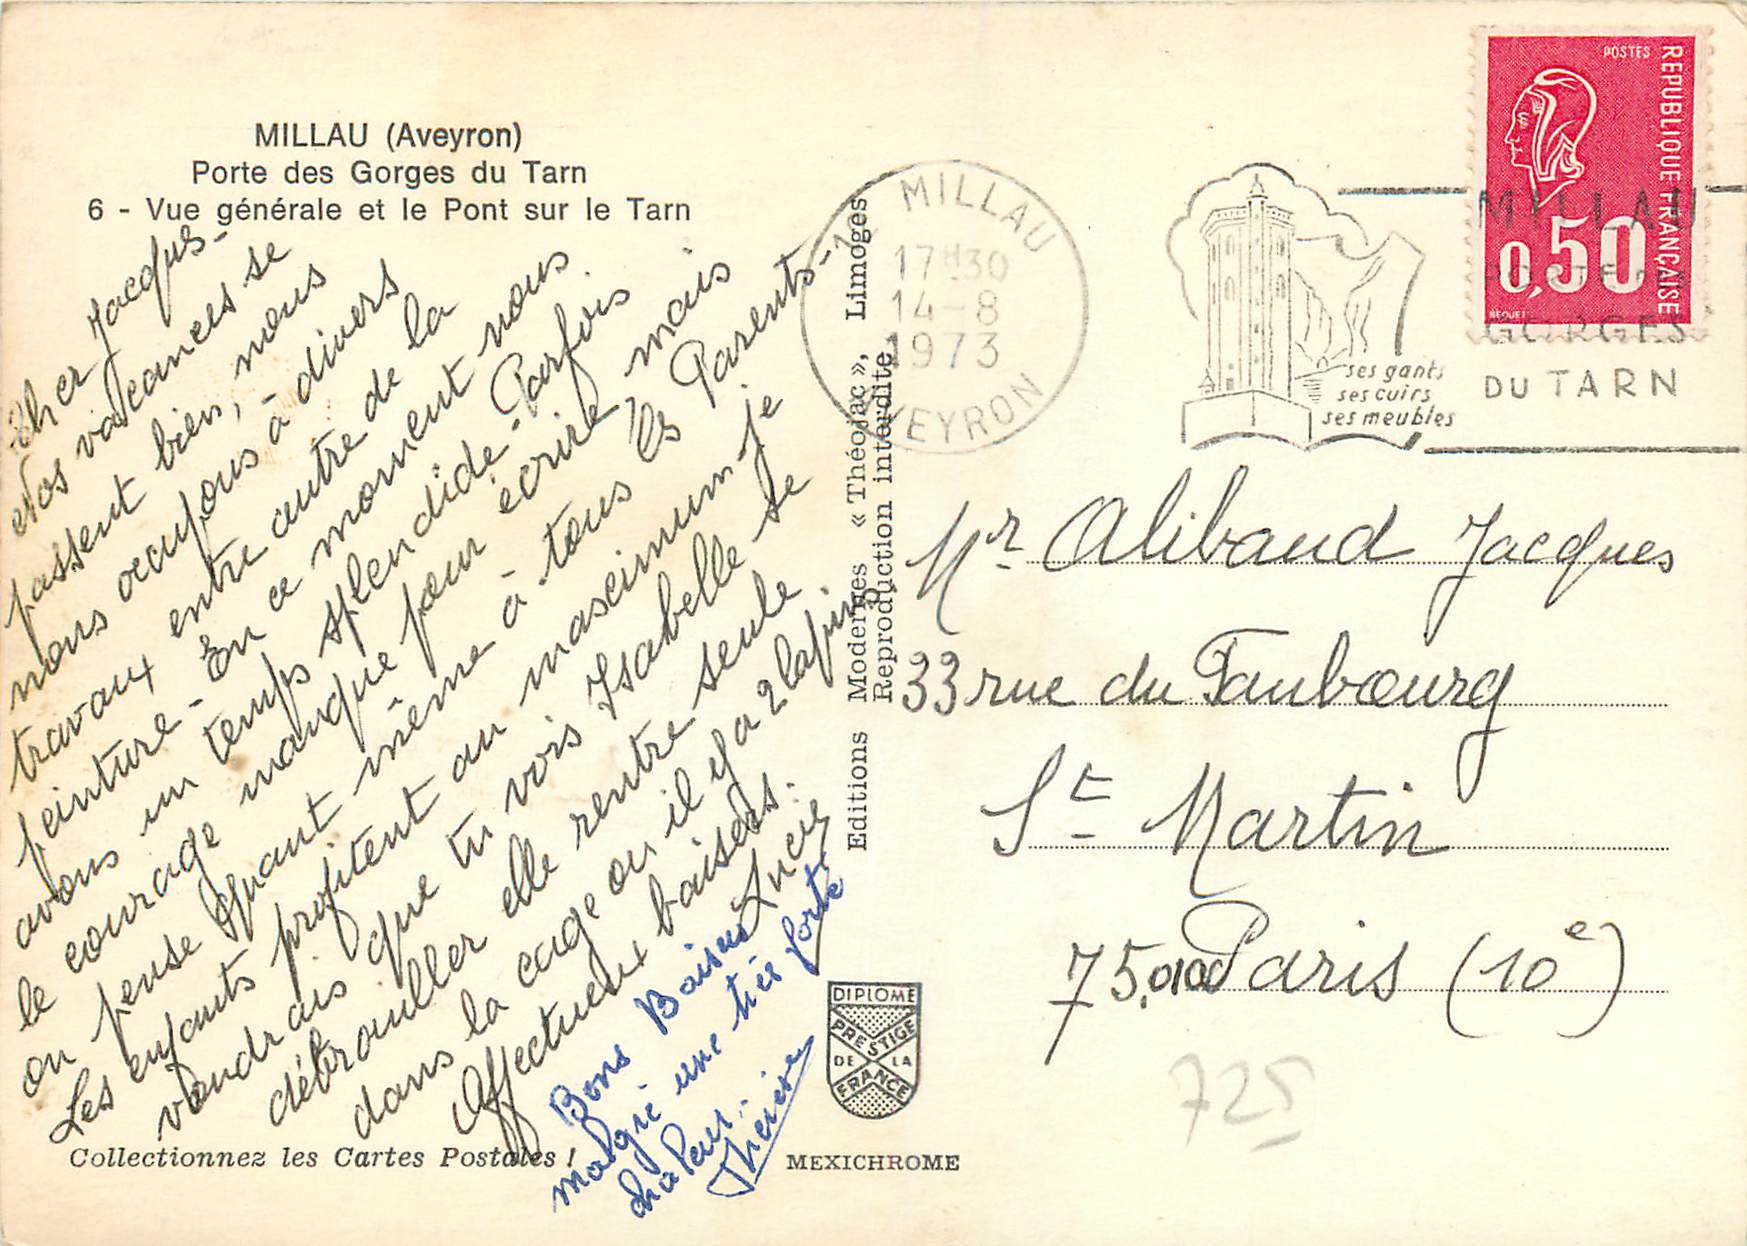 MILLAU (Aveyron)
Porte des Gorges du Tarn
6 - Vue générale et le Pont sur le Tarn
Cher Jacques -
Nos vacances se
passent bien, nous
nous occupons à divers
travaux entre autre de la
peinture - En ce moment nous
avons un temps splendide - Parfois
le courage manque pour écrire, mais
on pense quant même à tous les Parents -
Les enfants profitent au maximum je
voudrais que tu vois Isabelle se
débrouiller elle rentre seule
dans la cage ou il y a 2 lapins
Affectueux baisers.
Lucie
Bons Baisers
malgré une très forte
chaleur.
Thérèse
Collectionnez les Cartes Postales !
Editions Modernes « Théojac », Limoges
Reproduction interdite
DIPLOME
PRESTIGE
DE LA
FRANCE
MEXICHROME
MILLAU
17H30
14-8
1973
AVEYRON
ses gants
ses cuirs
ses meubles
MILLAU
PORTE DES
GORGES
DU TARN
POSTES
REPUBLIQUE FRANÇAISE
0,50
BEQUET
Mr Alibaud Jacques
33 rue du Faubourg
St Martin
75,010 Paris (10e)
725